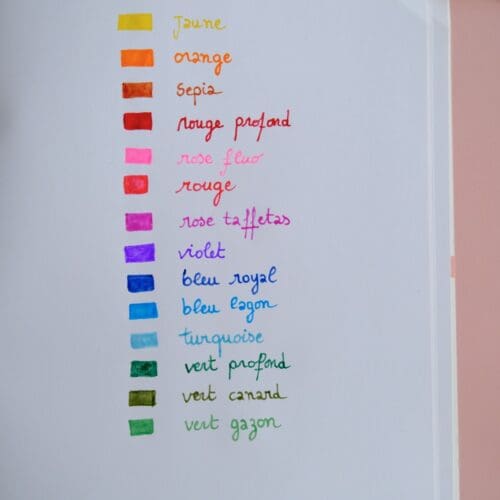 jaune
orange
sepia
rouge profond
rose fluo
rouge
rose taffetas
violet
bleu royal
bleu lagon
turquoise
vert profond
vert canard
vert gazon